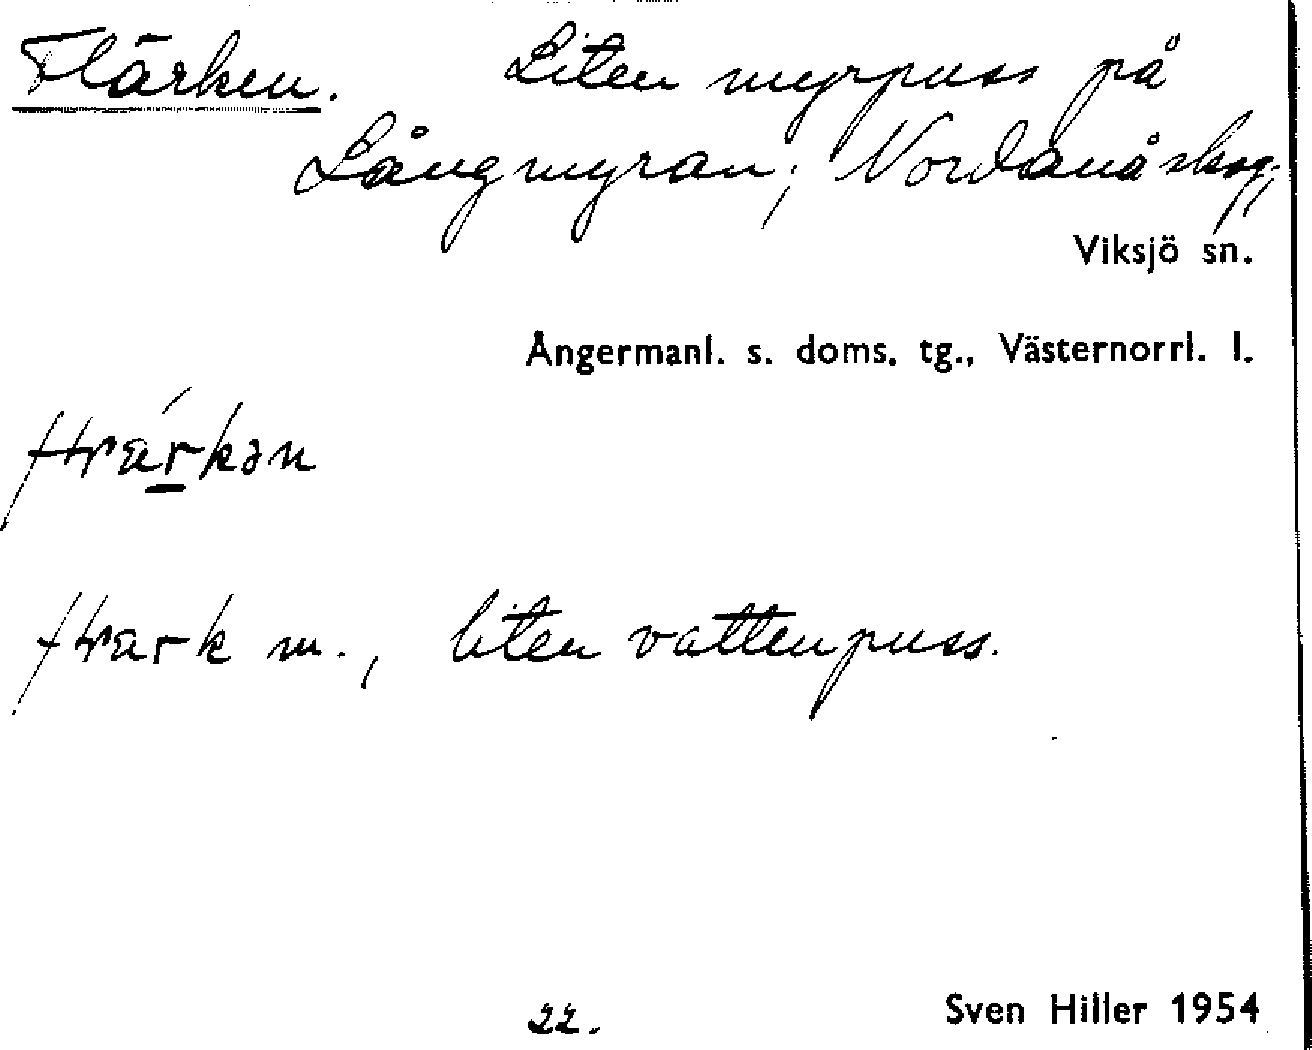 Flärken. Liten myrpuss på
Långmyran; Nordanåskog;
Viksjö sn.
Ångermanl. s. doms. tg., Västernorrl. l.
m., liten vattenpuss.
22.
Sven Hiller 1954